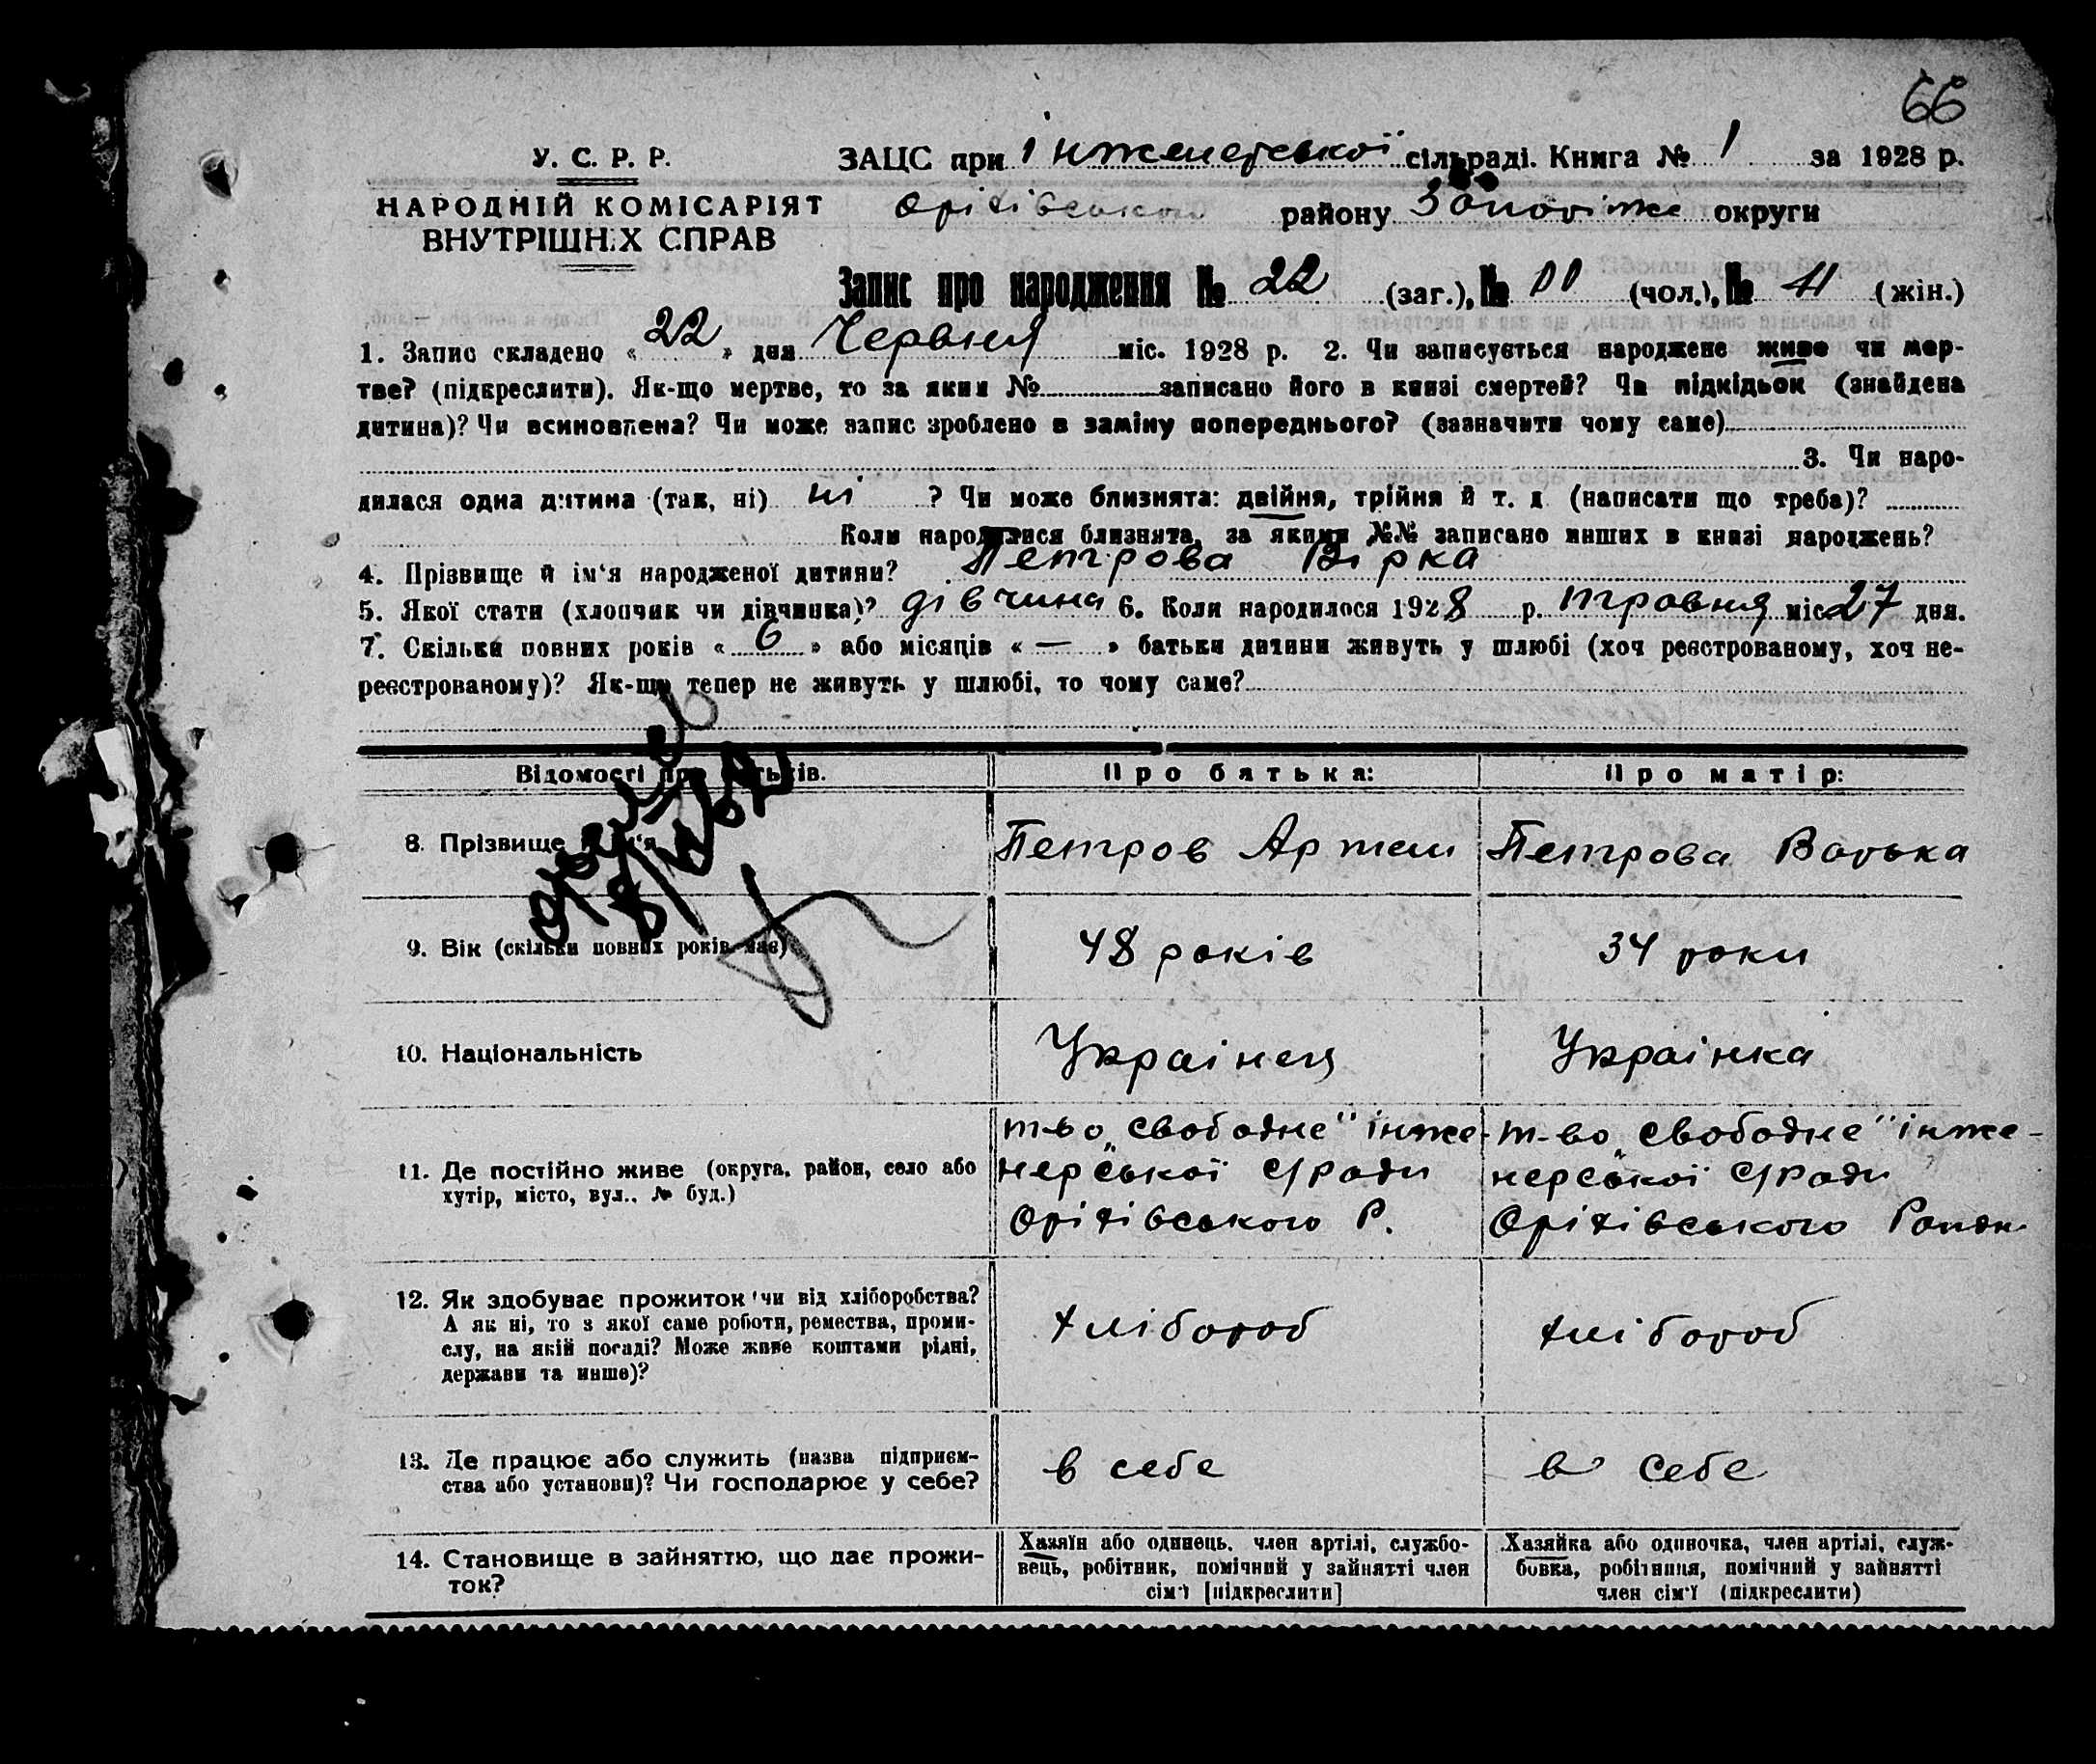 66
У. С. Р. Р.
НАРОДНІЙ КОМІСАРІЯТ
ВНУТРІШНІХ СПРАВ
ЗАЦС при Інженерської сільраді. Книга № 1 за 1928 р.
Оріхівського району Запоріже округи
Запис про народження № 22 (заг.), № 11 (чол.), № 11 (жін.)
1. Запис складено « 22 » дня Червня міс. 1928 р. 2. Чи записується народжене живе чи мер-
тве? (підкреслити). Як-що мертве, то за яким № записано його в книзі смертей? Чи підкідьок (знайдена
дитина)? Чи всиновлена? Чи може запис зроблено в заміну попереднього? (зазначити чому саме)
3. Чи наро-
дилася одна дитина (так, ні) ні ? Чи може близнята: двійня, трійня й т. д. (написати що треба)?
Коли народилися близнята, за якими №№ записано инших в книзі народжень?
4. Прізвище й ім‘я народженої дитини? Петрова Вірка
5. Якої стати (хлопчик чи дівчинка)? дівчина 6. Коли народилося 1928 р. травня міс 27 дня.
7. Скільки повних років « 6 » або місяців « — » батьки дитини живуть у шлюбі (хоч реєстрованому, хоч не-
реєстрованому)? Як-що тепер не живуть у шлюбі, то чому саме?
Відомості про батьків. Про батька: Про матір:
8. Прізвище й ім‘я Петров Артем Петрова Варька
9. Вік (скільки повних років має) 48 років 34 роки
10. Національність Українец Українка
11. Де постійно живе (округа, район, село або
хутір, місто, вул., № буд.)
т-во „Свободне" інже-
нерської с/ради
Оріхівського Р.
т-во „Свободне" інже-
нерської с/ради
Оріхівського
12. Як здобуває прожиток чи від хліборобства?
А як ні, то з якої саме роботи, ремества, проми-
слу, на якій посаді? Може живе коштами рідні,
держави та инше)?
хлібороб хлібороб
13. Де працює або служить (назва підприєм-
ства або установи)? Чи господарює у себе?
в себе в себе
14. Становище в зайняттю, що дає прожи-
ток?
Хазяїн або одинець, член артілі, службо-
вець, робітник, помічний у зайнятті член
сім‘ї [підкреслити]
Хазяйка або одиночка, член артілі, служ-
бовка, робітниця, помічний у зайнятті
член сім‘ї (підкреслити)